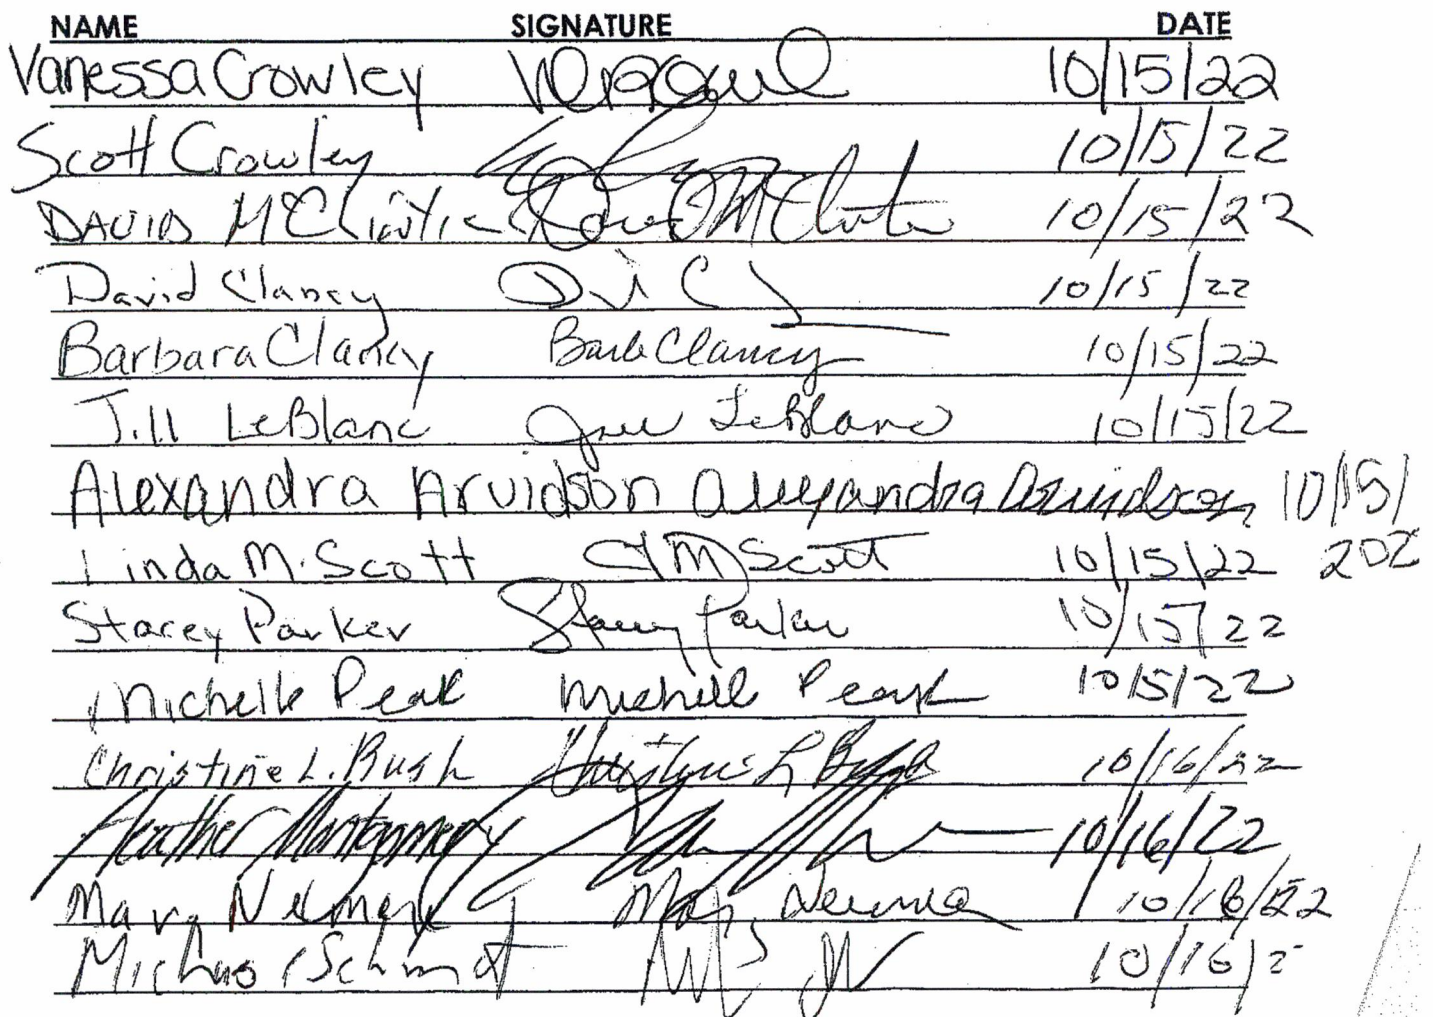 NAME SIGNATURE DATE
Vanessa Crowley 10/15/22
Scott Crowley 10/15/22
DAVID McClintic David McClintic 10/15/22
David Clancy 10/15/22
Barbara Clancy Barb Clancy 10/15/22
Jill LeBlanc Jill LeBlanc 10/15/22
Alexandra Arvidson Alexandra Arvidson 10/15/
Linda M. Scott L M Scott 10/15/22 202
Stacey Parker Stacey Parker 10/15/22
Michelle Peak Michelle Peak 10/15/22
Christine L. Bush Christine L Bush 10/16/22
Heather Montgomery 10/16/22
Mary 10/16/22
Michael Schmidt 10/16/2